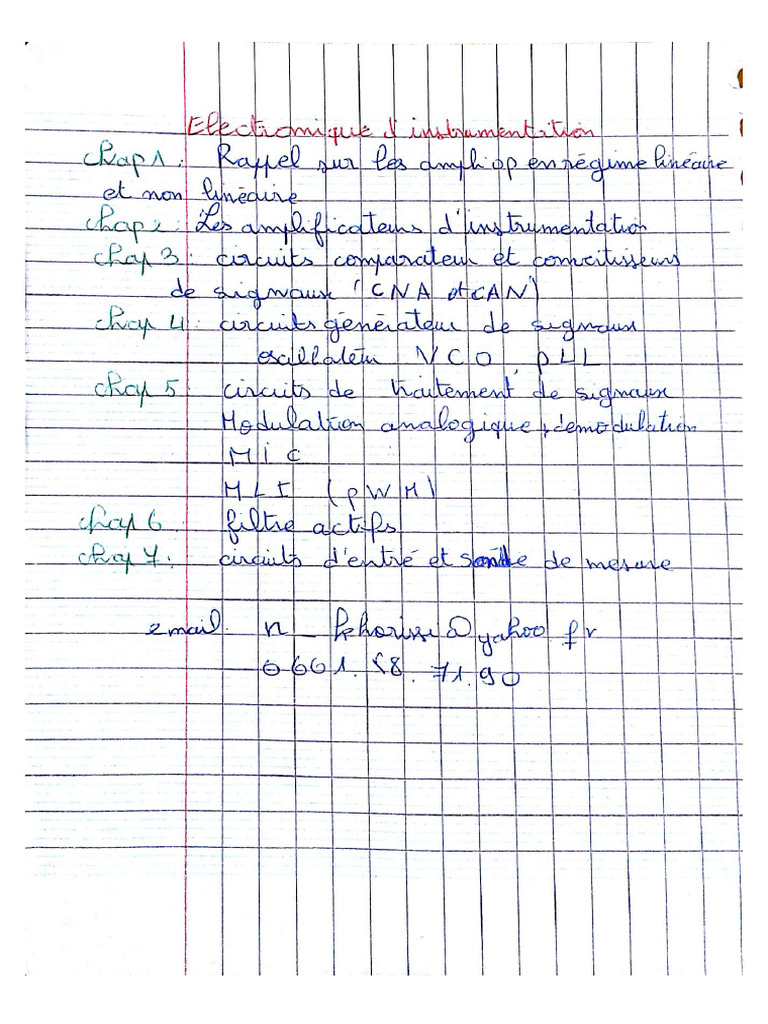 Electronique d'instrumentation
Chap 1: Rappel sur les ampli op en régime linéaire
et non linéaire
Chap 2: Les amplificateurs d'instrumentation
Chap 3: circuits comparateur et convertisseurs
de signaux (CNA et CAN)
Chap 4: circuits générateur de signaux
oscillateur VCO, PLL
Chap 5 circuits de traitement de signaux
Modulation analogique, démodulation
MIC
MLI (PWM)
Chap 6 filtre actifs
Chap 7: circuits d'entré et sonde de mesure
email. n_ @yahoo fr
0661. 71.90